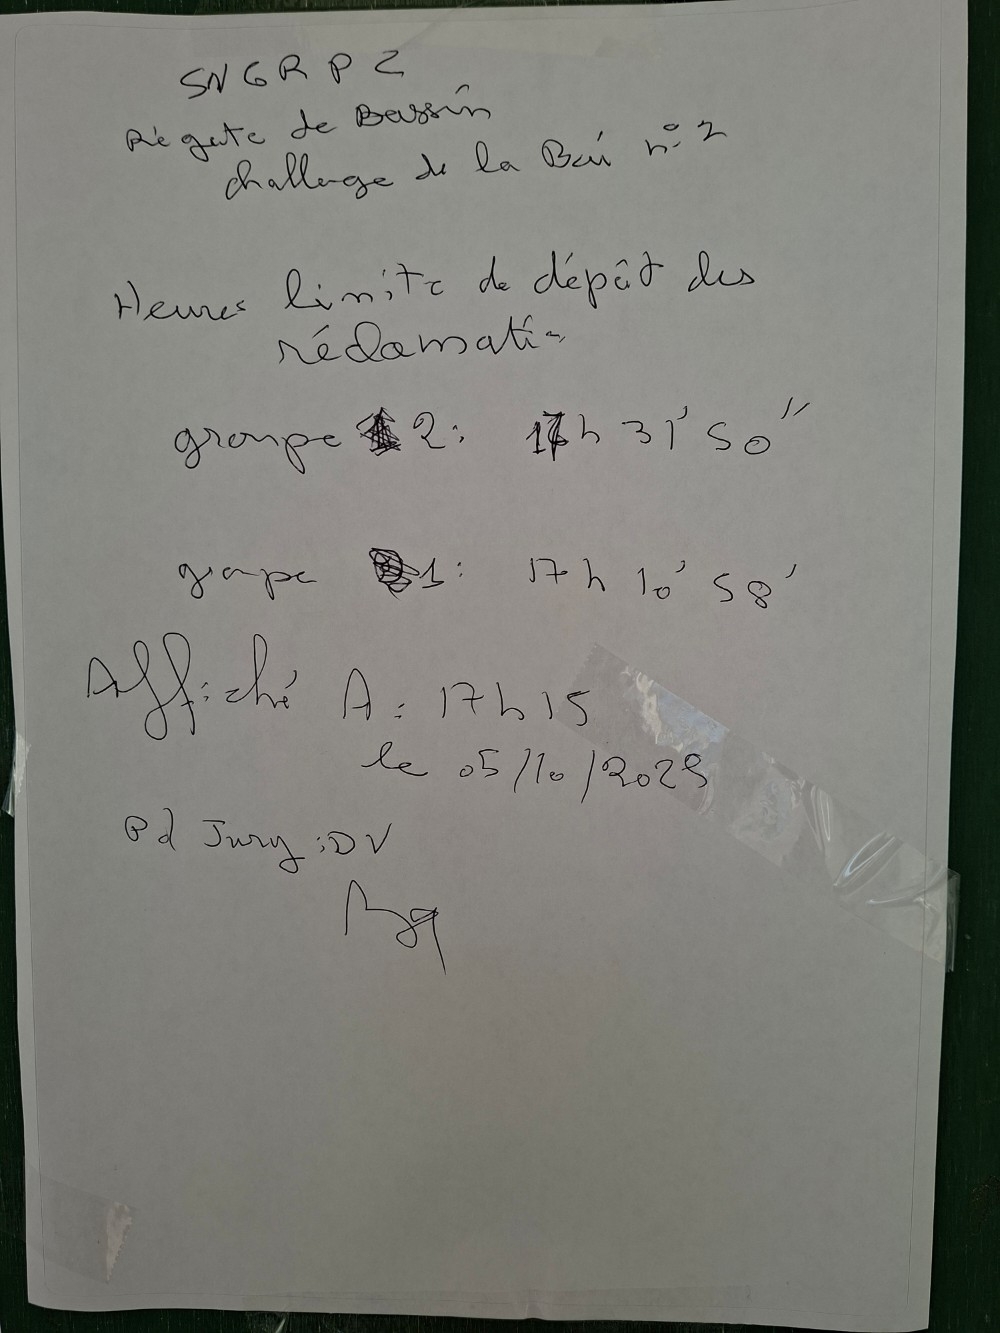 SNGRP2
Régate de Bassin
challenge de la Baie n°2
Heures limite de dépôt des
réclamation
groupe 2: 17h 31' 50''
groupe 1: 17h 10' 58'
Affiché A: 17h15
le 05/10/2025
Pd Jury: DV